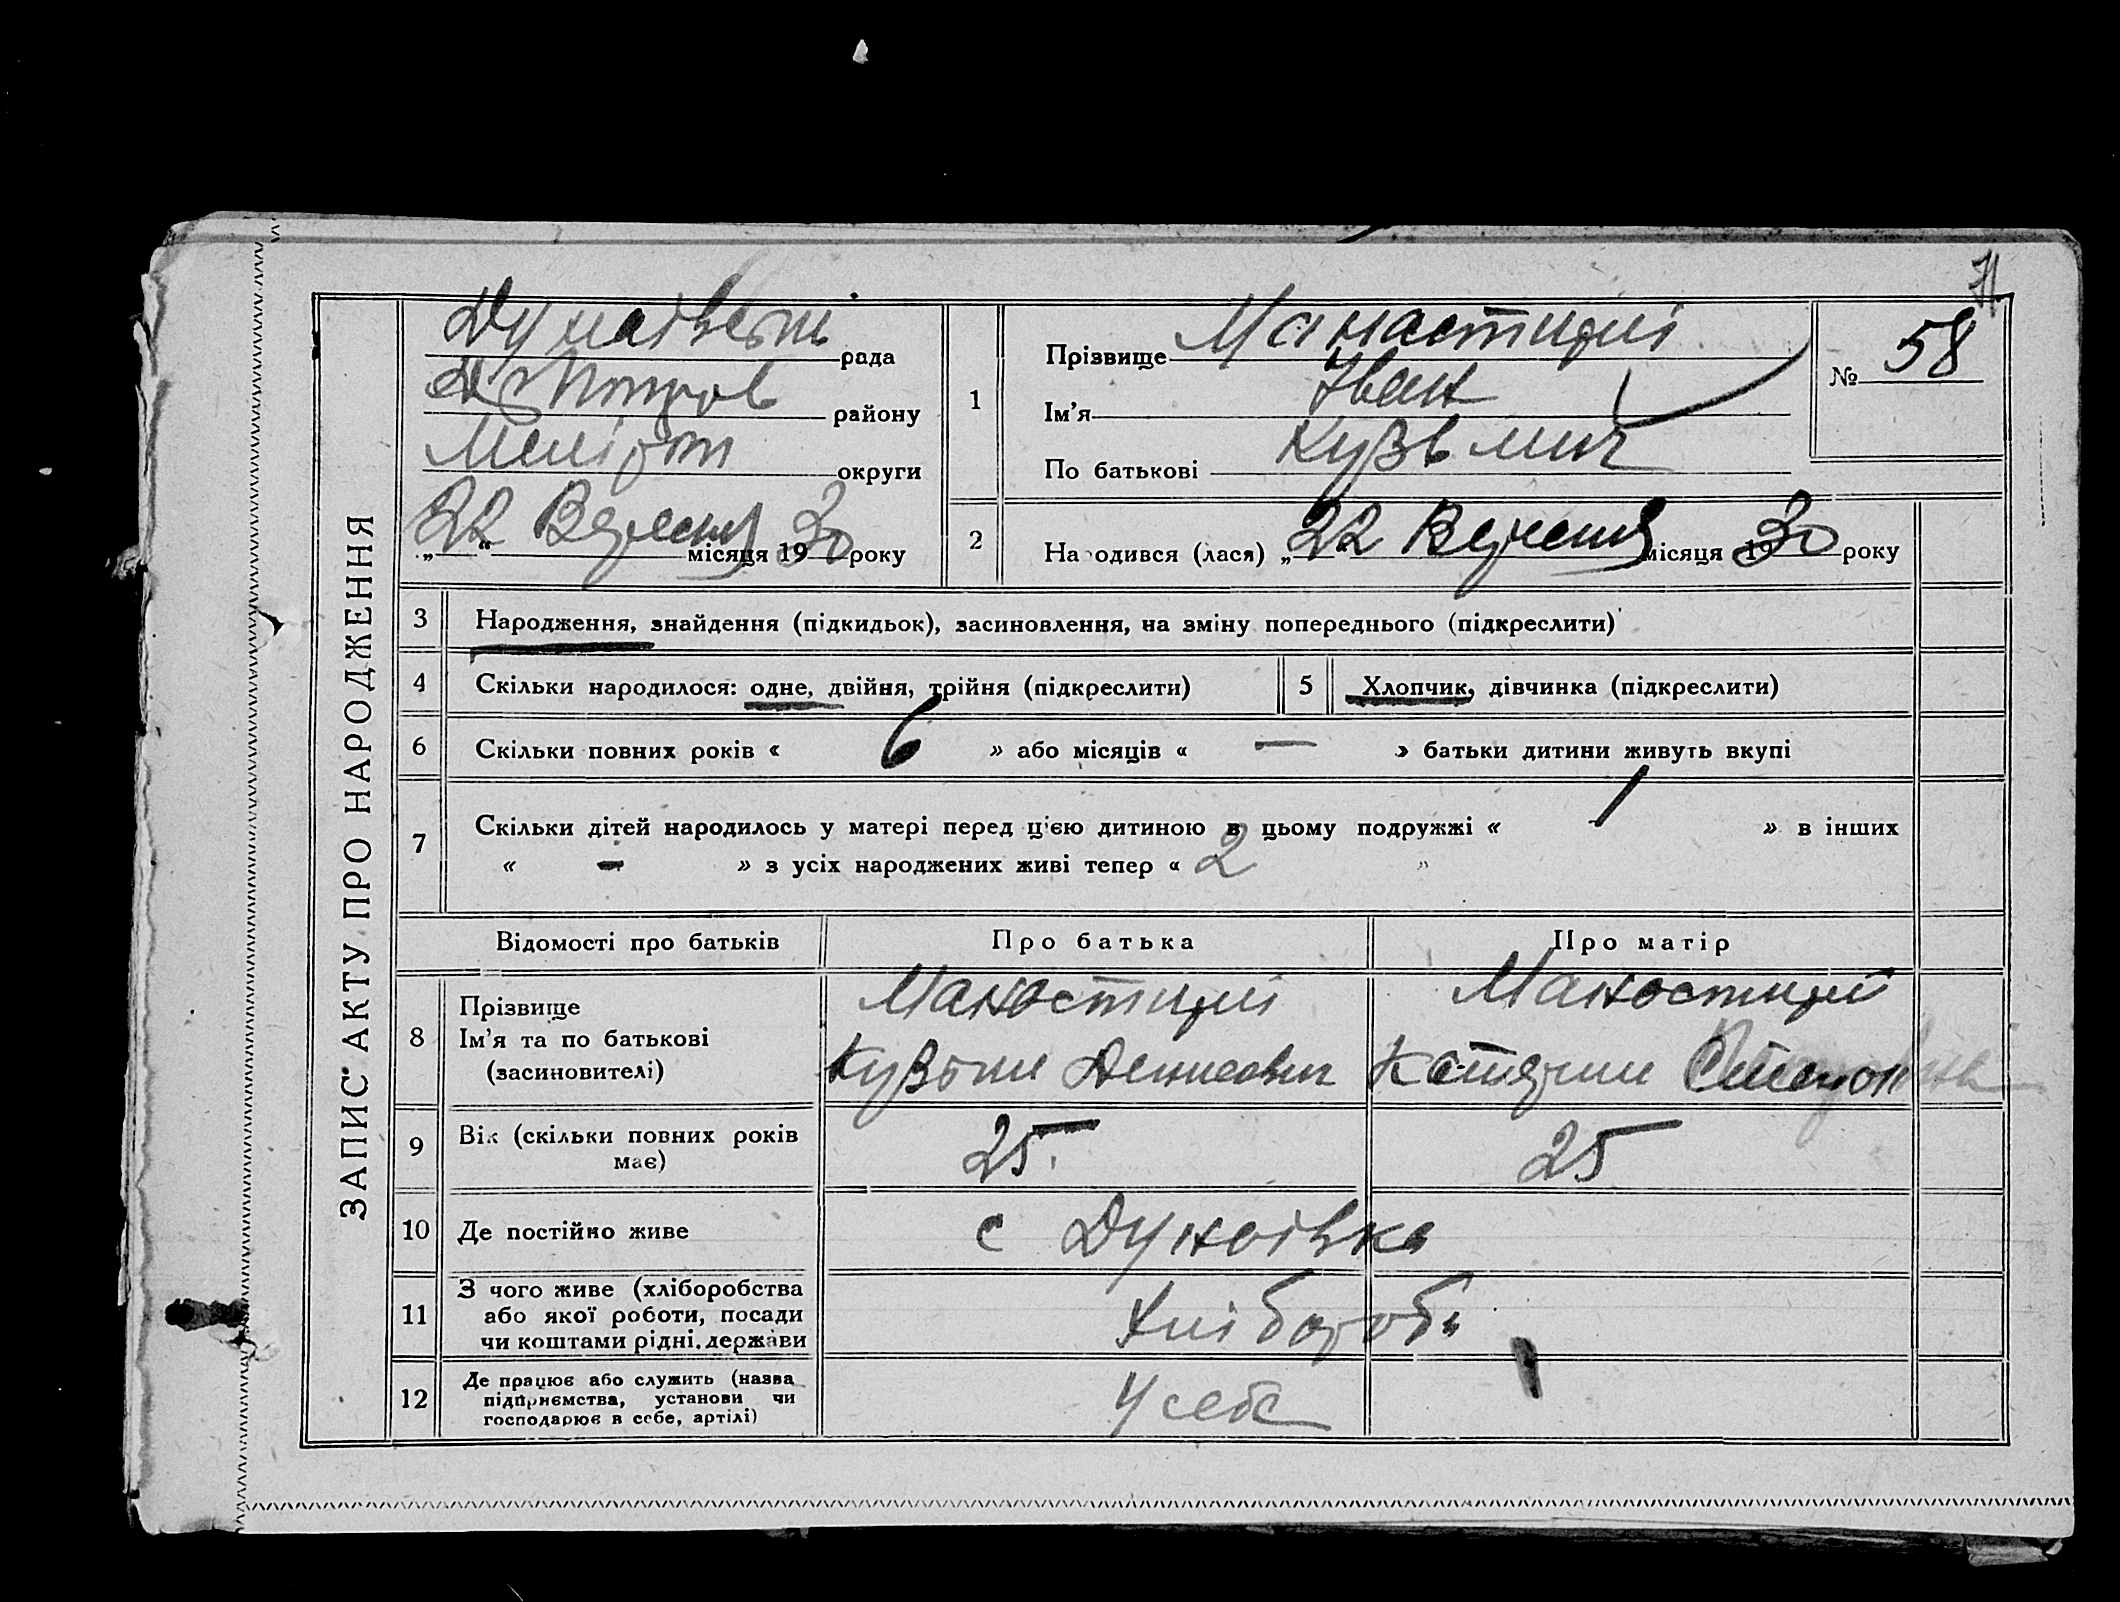 71
ЗАПИС АКТУ ПРО НАРОДЖЕННЯ
Дунаївська рада
району
Меліто округи
„22“ Вересня місяця 1930 року
1
Прізвище Манастирлі
Ім'я Іван
По батькові Кузьмич
№ 58
2
Народився (лася) „22 Вересня місяця 1930 року
3 Народження, знайдення (підкидьок), засиновлення, на зміну попереднього (підкреслити)
4 Скільки народилося: одне, двійня, трійня (підкреслити) 5 Хлопчик, дівчинка (підкреслити)
6 Скільки повних років « 6 » або місяців « — » батьки дитини живуть вкупі
7 Скільки дітей народилось у матері перед цією дитиною в цьому подружжі « 1 » в інших
« – » з усіх народжених живі тепер « 2 »
Відомості про батьків Про батька Про матір
8 Прізвище
Ім'я та по батькові
(засиновителі)
Манастирлі Манастирлі
Кузьма Денисович Катерина
9 Вік (скільки повних років має) 25 25
10 Де постійно живе с Дунаївка
11 З чого живе (хліборобства
або якої роботи, посади
чи коштами рідні, держави
Хлібороби
12 Де працює або служить (назва
підприємства, установи чи
господарює в себе, артілі)
У себе